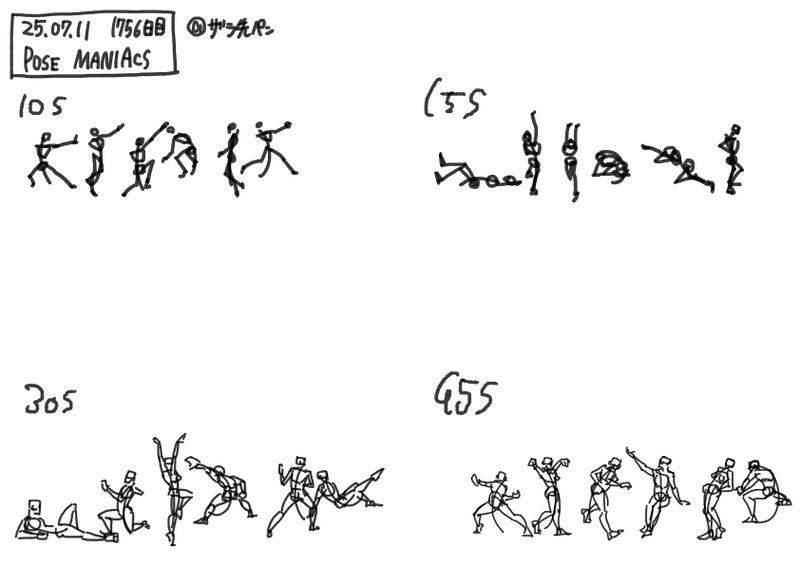 25.07.11 1756日目 @ザシ先パン
POSE MANIACS
10S
15S
30S
45S